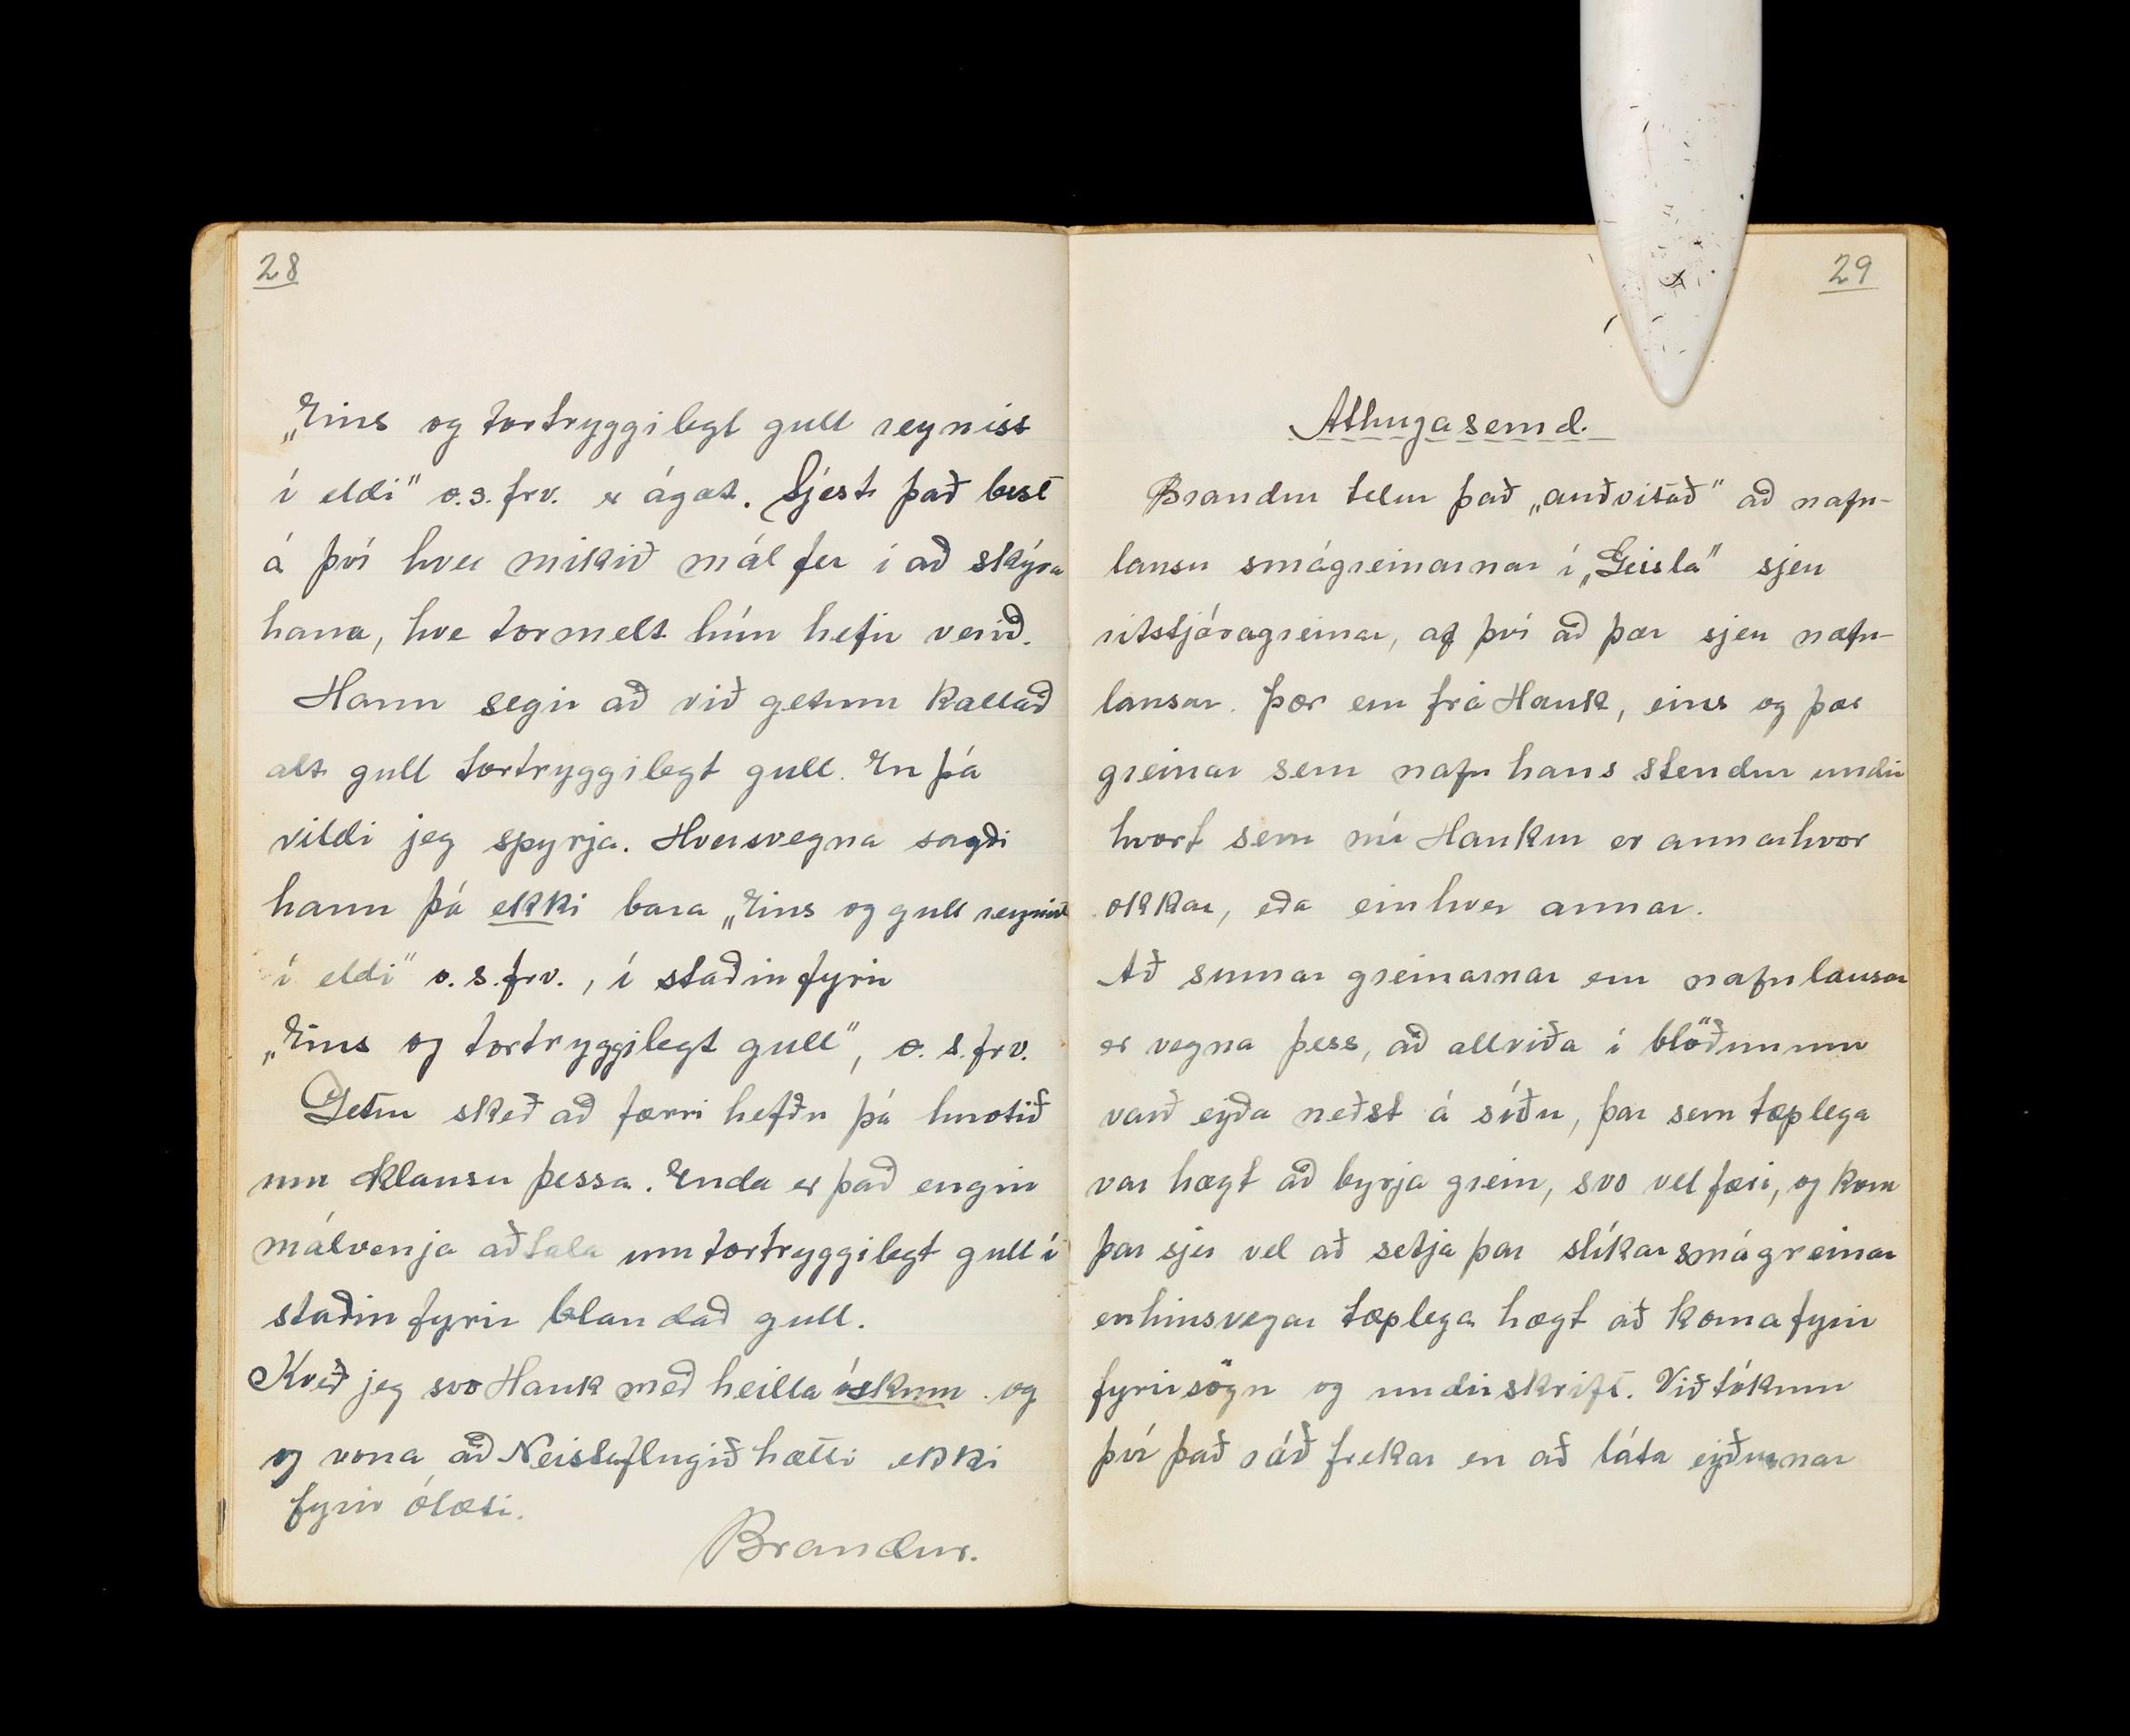 28
„Eins og tortryggilegt gull reynist
í eldi" o.s.frv. er ágæt. Sjest það best
á því hve mikið mál fer í að skýra
hana, hve tormelt hún hefir verið.
Hann segir að við getum kallað
alt gull tortryggilegt gull. En þá
vildi jeg spyrja. Hversvegna sagði
hann þá ekki bara „Eins og gull reynist
í eldi" o.s.frv., í staðin fyrir
„Eins og tortryggilegt gull", o.s.frv.
Getur skeð að færri hefðu þá hnotið
um klausu þessa. Enda er það engin
málvenja að tala um tortryggilegt gull í
staðin fyrir blandað gull.
Kveð jeg svo Hauk með heilla óskum og
og vona að Neistaflugið hætti ekki
fyrir ólæsi.
Brandur.
29
Athugasemd.
Brandur telur það „auðvitað" að nafn-
lausu smágreinarnar í „Geisla" sjeu
ritstjóragreinar, af því að þær sjeu nafn-
lausar. Þær eru frá Hauk, eins og þær
greinar sem nafn hans stendur undir
hvort sem nú Haukur er annarhvor
okkar, eða einhver annar.
Að sumar greinarnar eru nafnlausar
er vegna þess, að allviða í blöðunum
varð eyða neðst á síðu, þar sem tæplega
var hægt að byrja grein, svo vel færi, og kom
þar sjer vel að setja þar slíkar smágreinar
en hinsvegar tæplega hægt að koma fyrir
fyrirsögn og undirskrift. Við tókum
því það ráð frekar en að láta eyðurnar